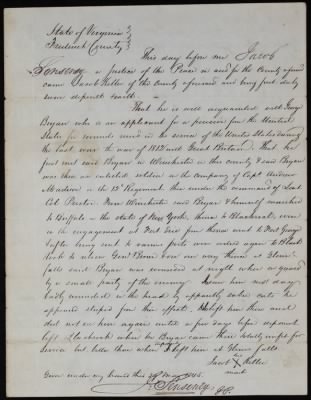 State of Virginia
Frederick County
This day before me Jacob
Senseny a Justice of the Peace in and for the County aforesaid
came Jacob Keller of the County aforesaid and being first duly
sworn deposeth & saith
That he is well acquainted with George
Bryan who is an applicant for a pension from the United
States for wounds received in the service of the United States during
the last war the war of 1812 with Great Britain. That he
first met said Bryan in Winchester in this county & said Bryan
was then an enlisted soldier in the company of Capt Andrew
Madison in the 12th Regiment then under the command of Lieut
Col Preston. From Winchester said Bryan & himself marched
to Buffalo in the State of New York, thence to Blackrock, were
in the engagement at Fort Erie from thence went to Fort George
after being sent to various forts were ordered again to Black
Rock to relieve Genl on our way thence at
falls said Bryan was wounded at night when on guard
by a small party of the enemy. I saw him next day
badly wounded in the head by apparently sabre cuts he
appeared stupid from their effect. We left him there and
did not see him again until a few days before deponent
left Blackrock when he Bryan came there totally unfit for
service but better than when I left him at falls
his
Jacob X Keller
mark
Given under my hand this 29th May 1845.
J. Senseny JP.